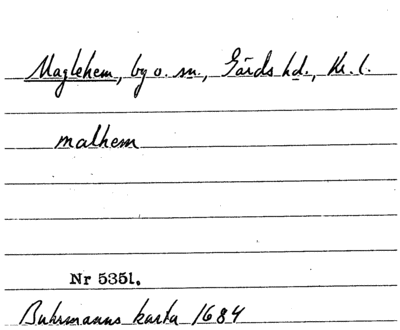 Maglehem, by o. sn., Gärds hd., Kr. l.
malhem
Nr 5351.
Buhrmanns karta 1684